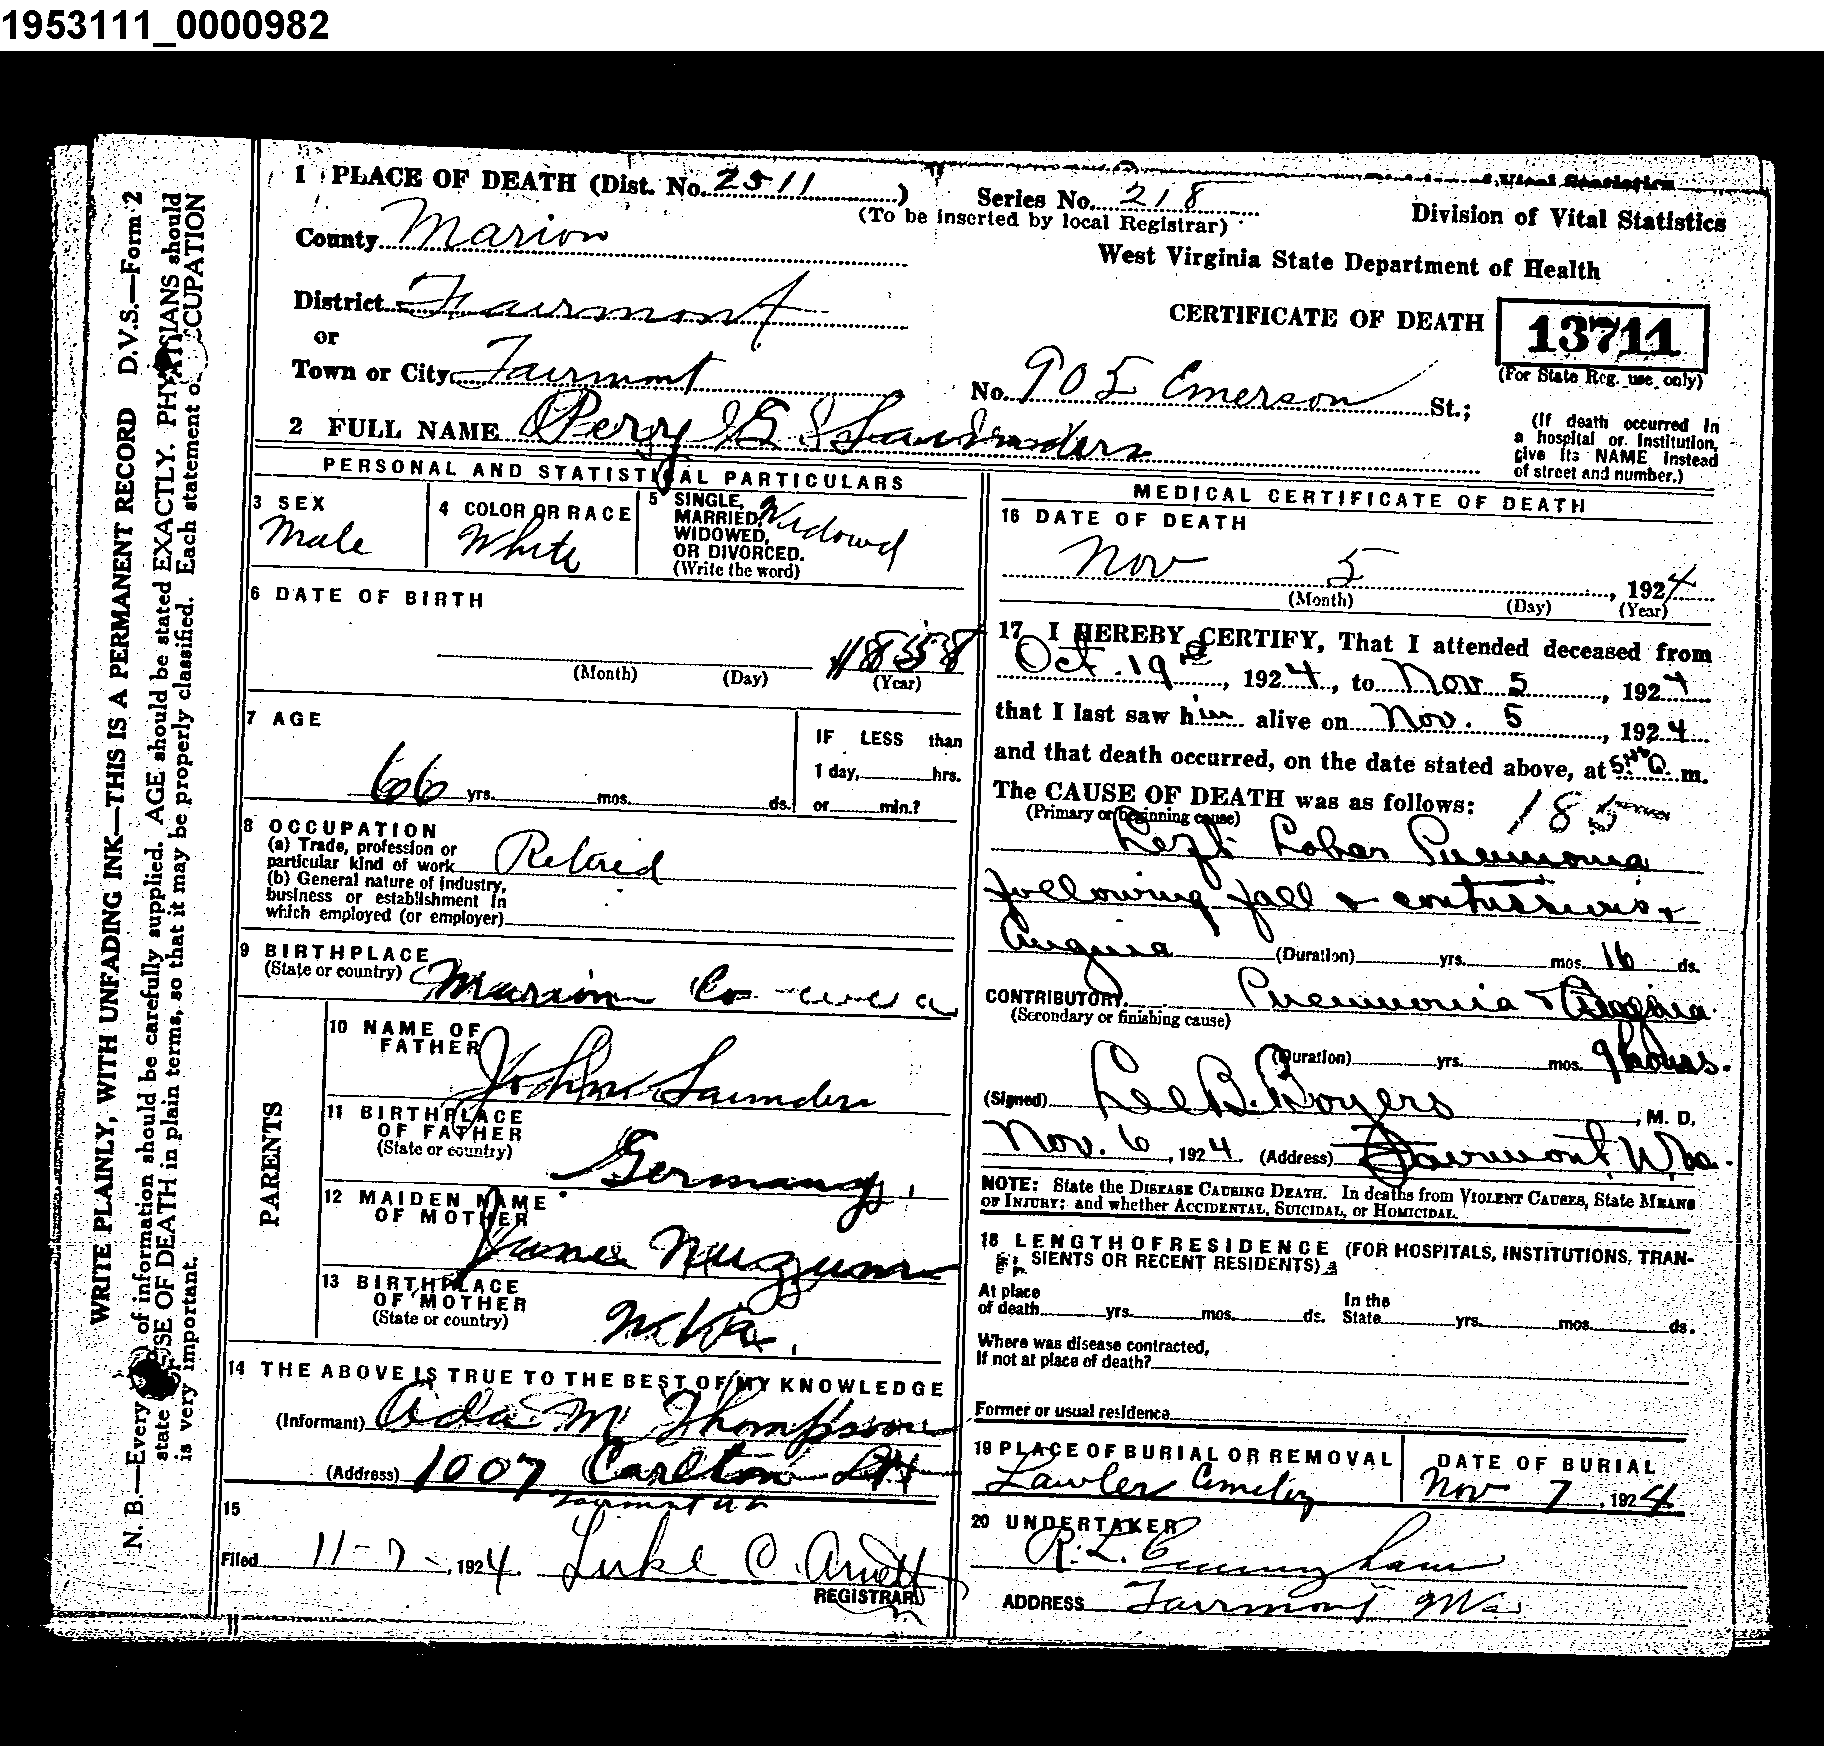 1953111_0000982
1 PLACE OF DEATH (Dist. No. 2511)
Series No. 218
(To be inserted by local Registrar)
Division of Vital Statistics
County Marion
West Virginia State Department of Health
District Fairmont
CERTIFICATE OF DEATH
13711
(For State Reg. use only)
or
Town or City Fairmont
No. 905 Emerson St.;
(If death occurred in
a hospital or institution,
give its NAME instead
of street and number.)
2 FULL NAME Perry Saunders
PERSONAL AND STATISTICAL PARTICULARS
3 SEX
Male
4 COLOR OR RACE
White
5 SINGLE,
MARRIED,
WIDOWED,
OR DIVORCED.
(Write the word)
Widowd
6 DATE OF BIRTH
1858
(Month) (Day) (Year)
7 AGE
66 yrs. mos. ds.
IF LESS than
1 day, hrs.
or min.?
8 OCCUPATION
(a) Trade, profession or
particular kind of work Retired
(b) General nature of industry,
business or establishment in
which employed (or employer)
9 BIRTHPLACE
(State or country) Marion Co
PARENTS
10 NAME OF
FATHER John Saunders
11 BIRTHPLACE
OF FATHER
(State or country) Germany.
12 MAIDEN NAME
OF MOTHER
Jane Nuzum
13 BIRTHPLACE
OF MOTHER
(State or country) W Va.
14 THE ABOVE IS TRUE TO THE BEST OF MY KNOWLEDGE
(Informant) Ada M Thompson
(Address) 1007 Carlton St
15
Filed 11-7-, 1924. Luke C. Arnett
REGISTRAR
MEDICAL CERTIFICATE OF DEATH
16 DATE OF DEATH
Nov 5, 1924
(Month) (Day) (Year)
17 I HEREBY CERTIFY, That I attended deceased from
Oct. 19, 1924, to Nov 5, 1924
that I last saw him alive on Nov. 5, 1924
and that death occurred, on the date stated above, at m.
The CAUSE OF DEATH was as follows: 185
(Primary or beginning cause)
Lobar Pneumonia
following fall & contussions &
Angina (Duration) yrs. mos. 16 ds.
CONTRIBUTORY Pneumonia & Angina
(Secondary or finishing cause)
(Duration) yrs. mos. 9 hours.
(Signed) Lee B. Boyers, M. D.
Nov. 6, 1924. (Address) Fairmont W Va.
NOTE: State the DISEASE CAUSING DEATH. In deaths from VIOLENT CAUSES, State MEANS
OF INJURY; and whether ACCIDENTAL, SUICIDAL, or HOMICIDAL.
18 LENGTH OF RESIDENCE (FOR HOSPITALS, INSTITUTIONS, TRAN-
SIENTS OR RECENT RESIDENTS)
At place
of death yrs. mos. ds.
In the
State yrs. mos. ds.
Where was disease contracted,
If not at place of death?
Former or usual residence
19 PLACE OF BURIAL OR REMOVAL
Lawler Cemetery
DATE OF BURIAL
Nov 7, 1924
20 UNDERTAKER
R. L. Cunningham
ADDRESS Fairmont W Va
WRITE PLAINLY, WITH UNFADING INK—THIS IS A PERMANENT RECORD D.V.S.—Form 2
N. B.—Every of information should be carefully supplied. AGE should be stated EXACTLY. PHYSICIANS should
state CAUSE OF DEATH in plain terms, so that it may be properly classified. Each statement of OCCUPATION
is very important.